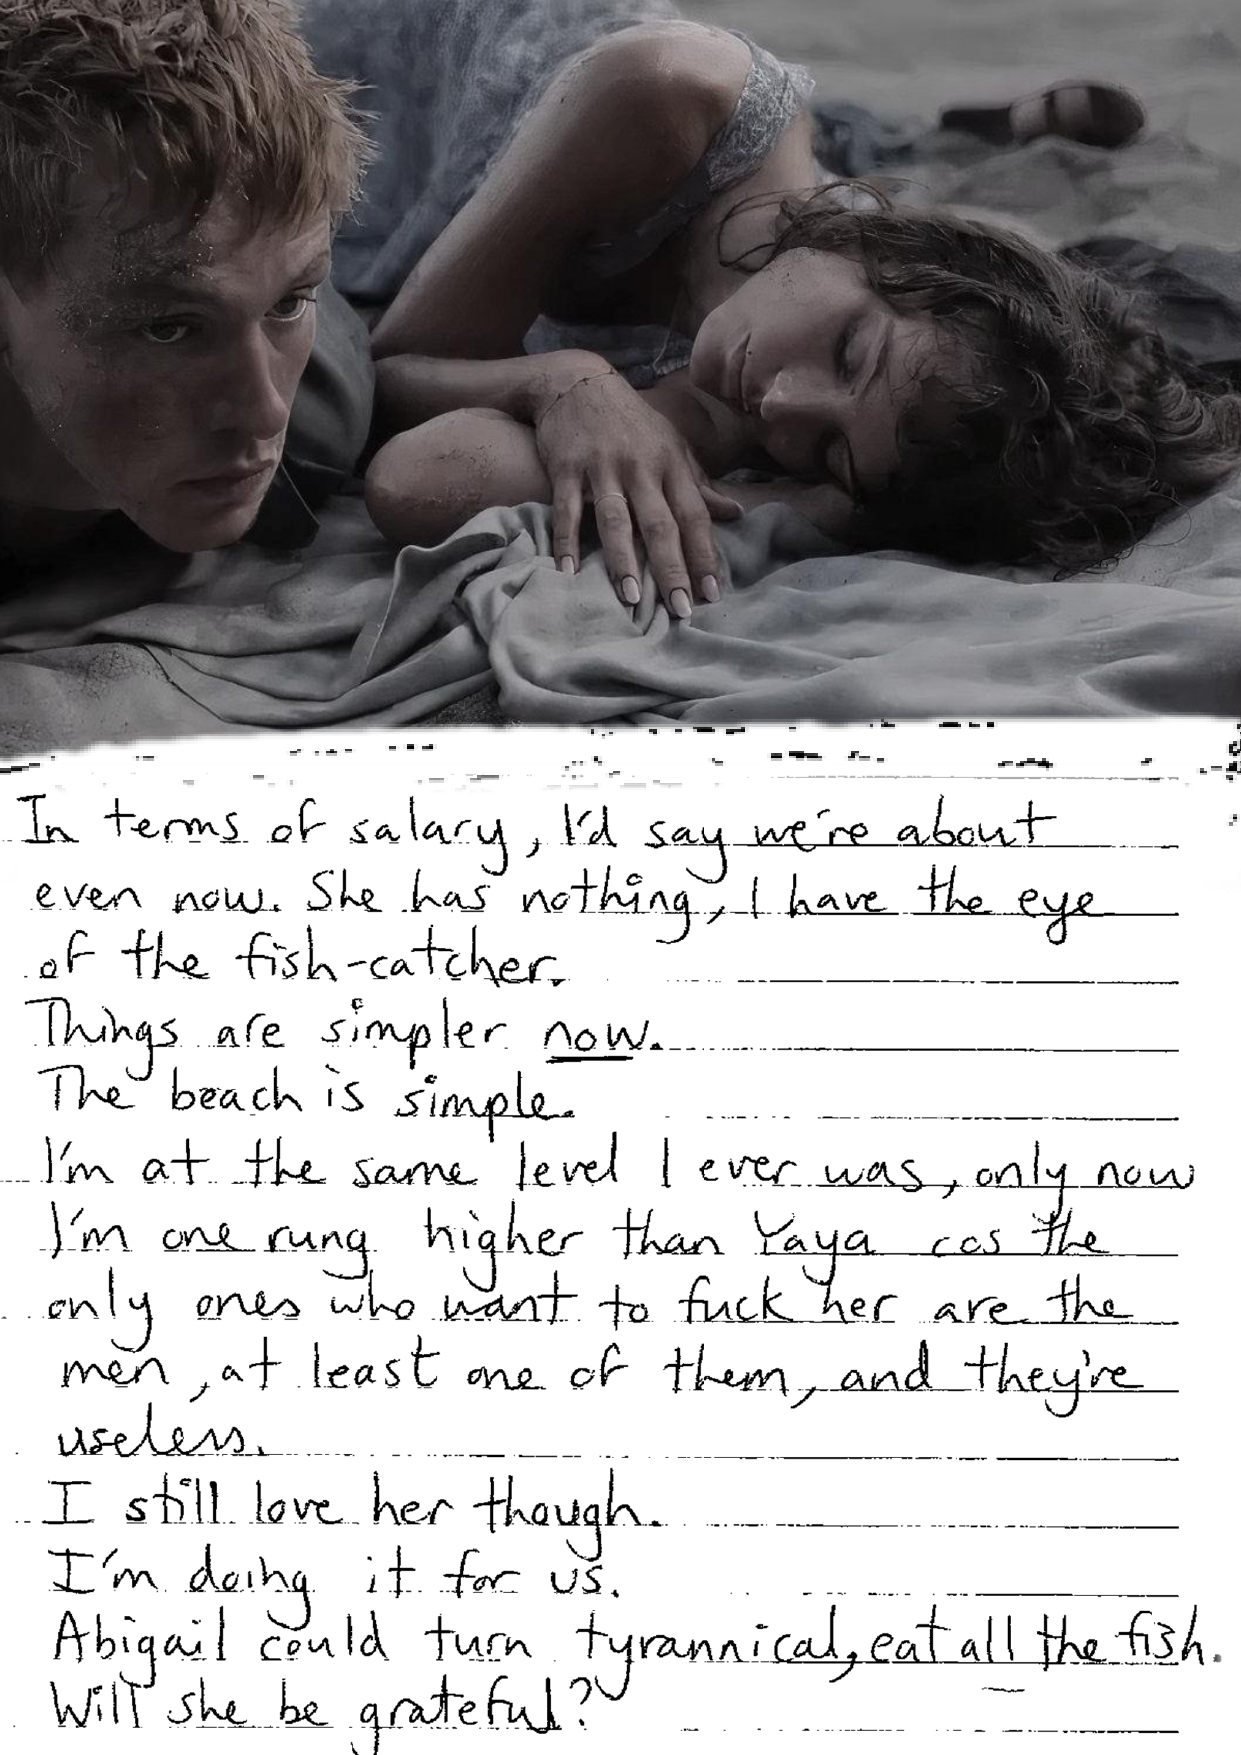 In terms of salary, I'd say we're about
even now. She has nothing, I have the eye
of the fish-catcher.
Things are simpler now.
The beach is simple.
I'm at the same level I ever was, only now
I'm one rung higher than Yaya cos the
only ones who want to fuck her are the
men, at least one of them, and they're
useless.
I still love her though.
I'm doing it for us.
Abigail could turn tyrannical, eat all the fish.
Will she be grateful?